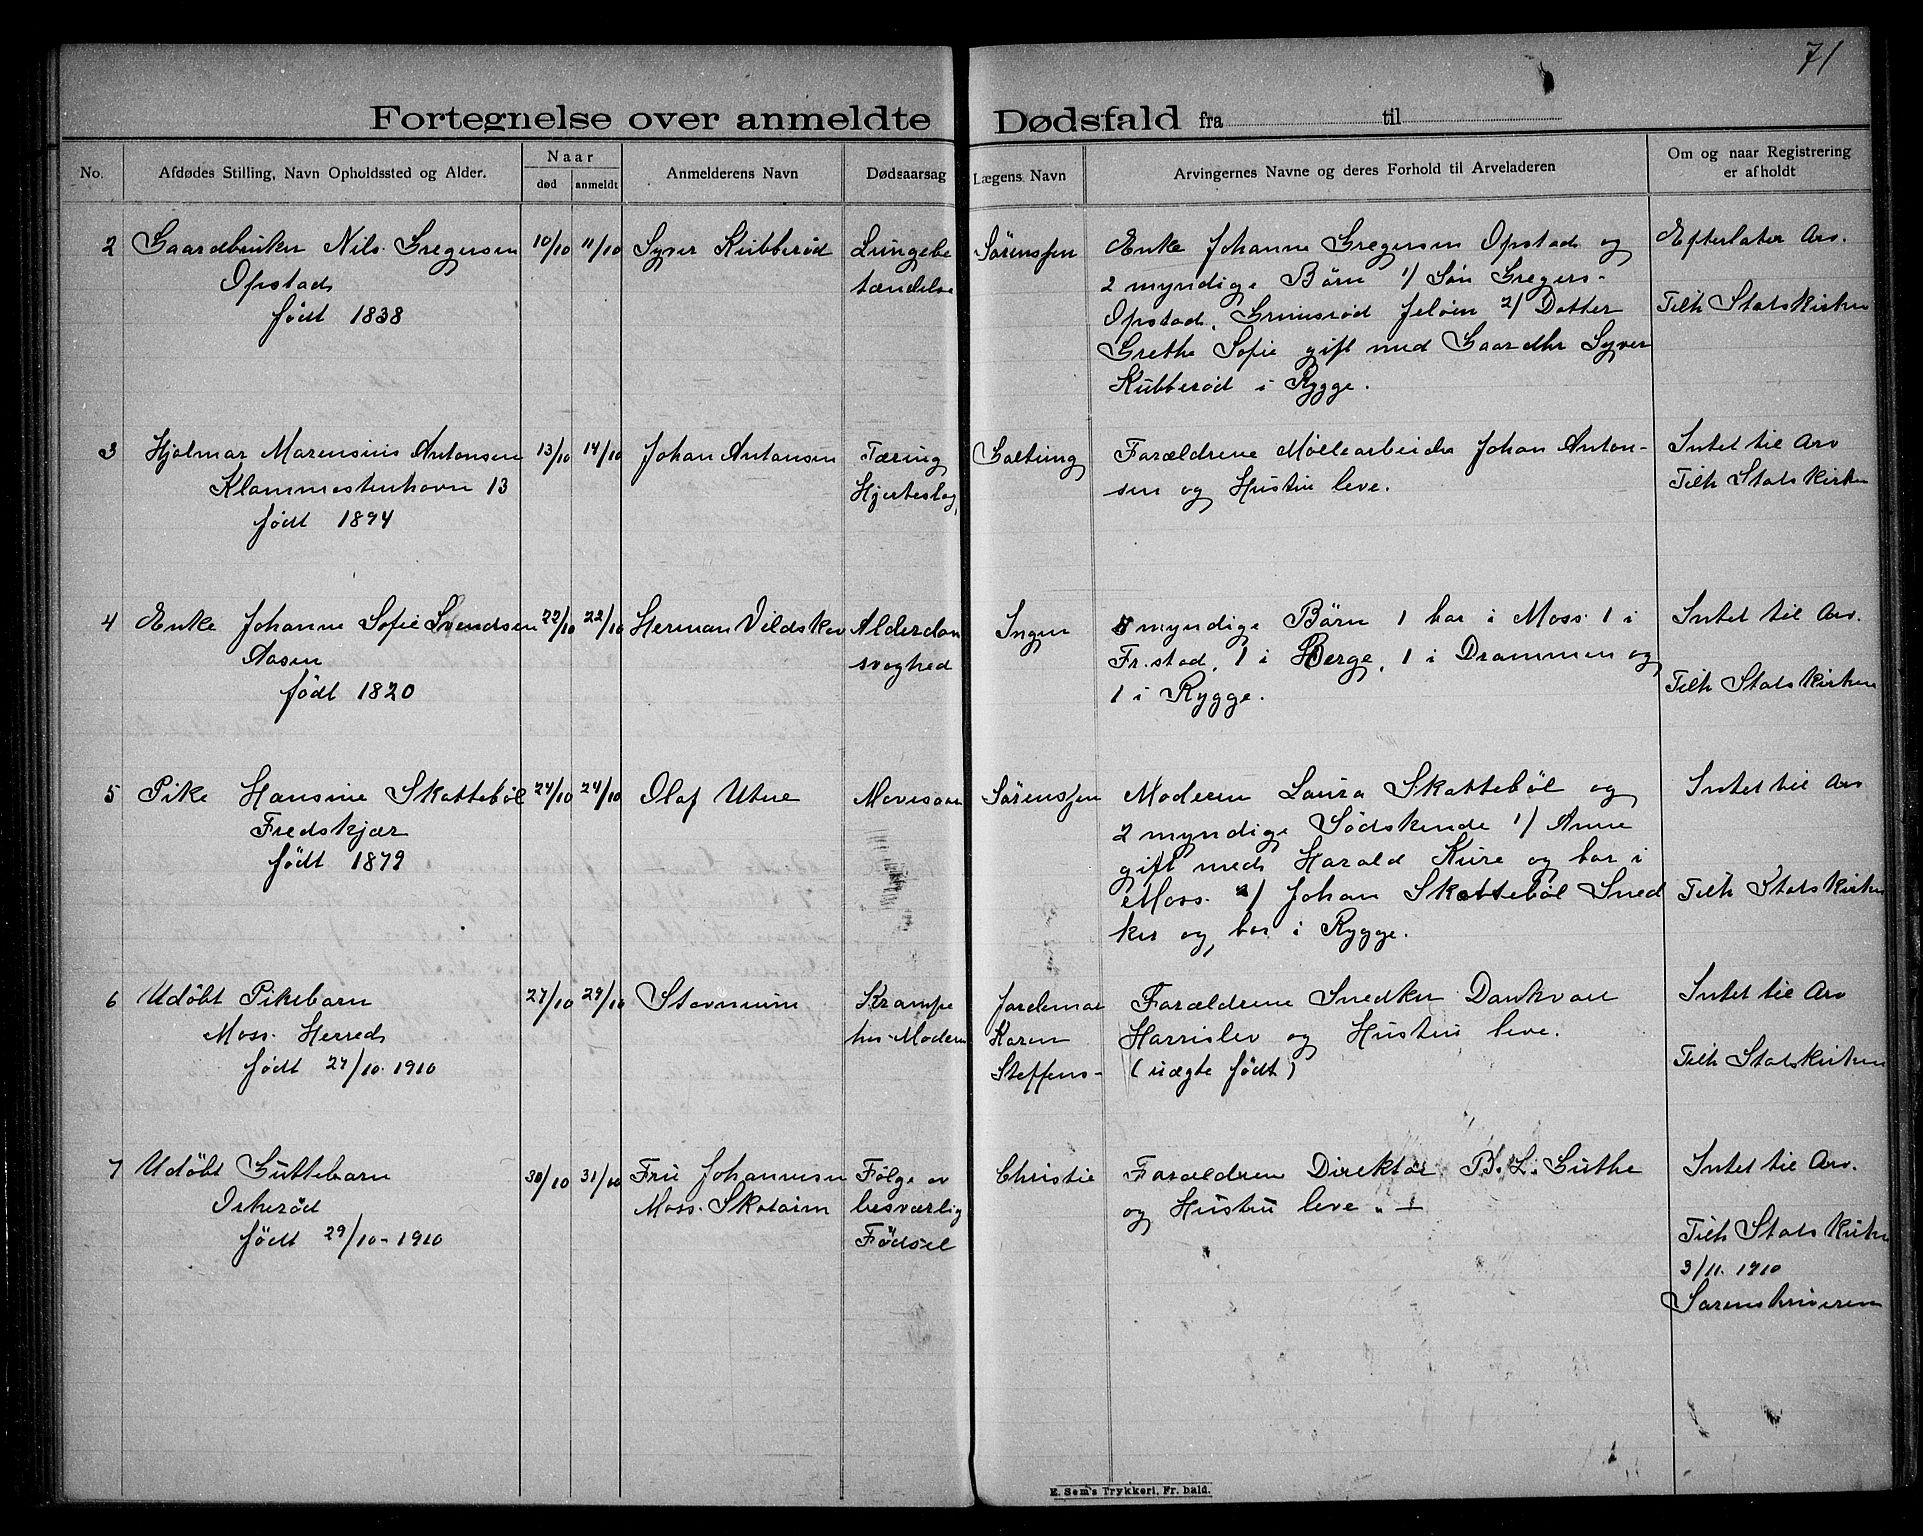 71
Fortegnelse over anmeldte Dødsfald fra til
No.
Afdødes Stilling, Navn Opholdssted og Alder.
Naar
død
anmeldt
Anmelderens Navn
Dødsaarsag
Lægens Navn
Arvingernes Navne og deres Forhold til Arveladeren
Om og naar Registrering
er afholdt
2
Gaardbruker Nils Gregersen
Opstad
født 1838
10/10
11/10
Syver Kubberød
Lungebe
tændelse
Sørenssen
Enke Johanne Gregersen Opstad og
2 myndige Børn 1/ Søn Gregers
Opstad, Grimsrød Jeløen 2/ Datter
Grethe Sofie gift med Gaardbr Syver
Kubberød i Rygge.
Efterlater Arv.
Tilh Statskirken
3
Hjalmar Marensius Antonsen
Klommestenhavn 13
født 1894
13/10
14/10
Johan Antonsen
Tæring
Hjerteslag
Galtung
Forældrene Møllearbeider Johan Anton-
sen og Hustru leve.
Intet til Arv
Tilh Statskirken
4
Enke Johanne Sofie Svendsen
Aasen
født 1820
22/10
22/10
Herman Vildskov
Alderdom
svaghed
Ingen
5 myndige Børn 1 bor i Moss 1 i
Fr.stad, 1 i Berge, 1 i Drammen og
1 i Rygge.
Intet til Arv.
Tilh Statskirken
5
Pike Hansine Skattebøl
Fredskjær
født 1879
24/10
24/10
Olaf Utne
Mavesaar
Sørenssen
Moderen Laura Skattebøl og
2 myndige Sødskende 1/ Anne
gift med Harald Kure og bor i
Moss. 2/ Johan Skattebøl Sned
ker og bor i Rygge.
Intet til Arv
Tilh Statskirken
6
Udøbt Pikebarn
Moss. Herred
født 27/10. 1910
27/10
29/10
Stavnum
Krampe
hos Moderen
Jordemor
Karen
Steffens-
Forældrene Snedker Dankvart
Harrislev og Hustru leve.
(uægte født)
Intet til Arv
Tilh Statskirken
7
Udøbt Guttebarn
Orkerød
født 29/10-1910
30/10
31/10
Fru Johannesen
Moss. Skotaien
Følge av
besværlig
Fødsel
Christie
Forældren Direktør B. L. Guthe
og Hustru leve
Intet til Arv.
Tilh Statskirken
3/11. 1910
Sorenskriveren
E. Sem's Trykkeri, Fr.hald.